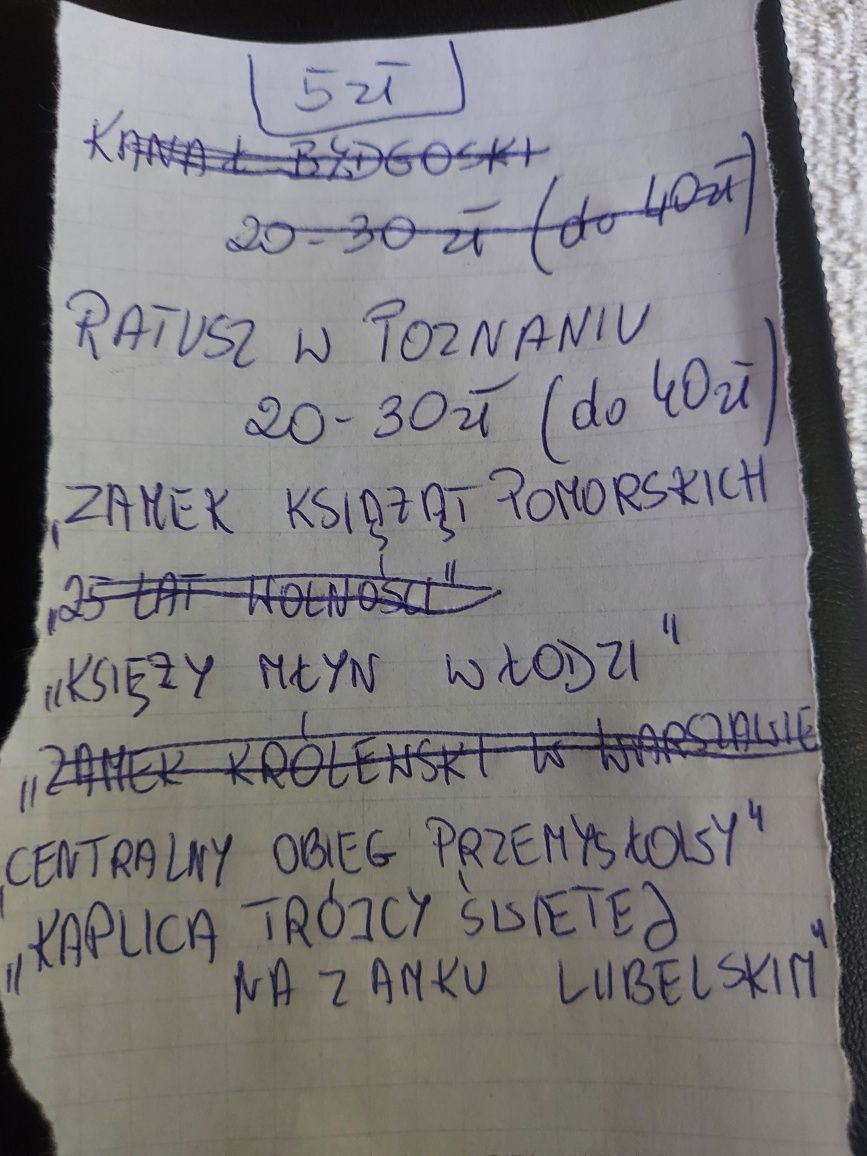 5 zł
KANAŁ BYDGOSKI
20-30 zł (do 40zł)
RATUSZ W POZNANIU
20-30zł (do 40zł)
„ZAMEK KSIĄŻĄT POMORSKICH
„25 LAT WOLNOŚCI"
„KSIĘŻY MŁYN W ŁODZI"
„ZAMEK KRÓLEWSKI W WARSZAWIE
„CENTRALNY OBIEG PRZEMYSŁOWY"
„KAPLICA TRÓJCY ŚWIETEJ
NA ZAMKU LUBELSKIM"